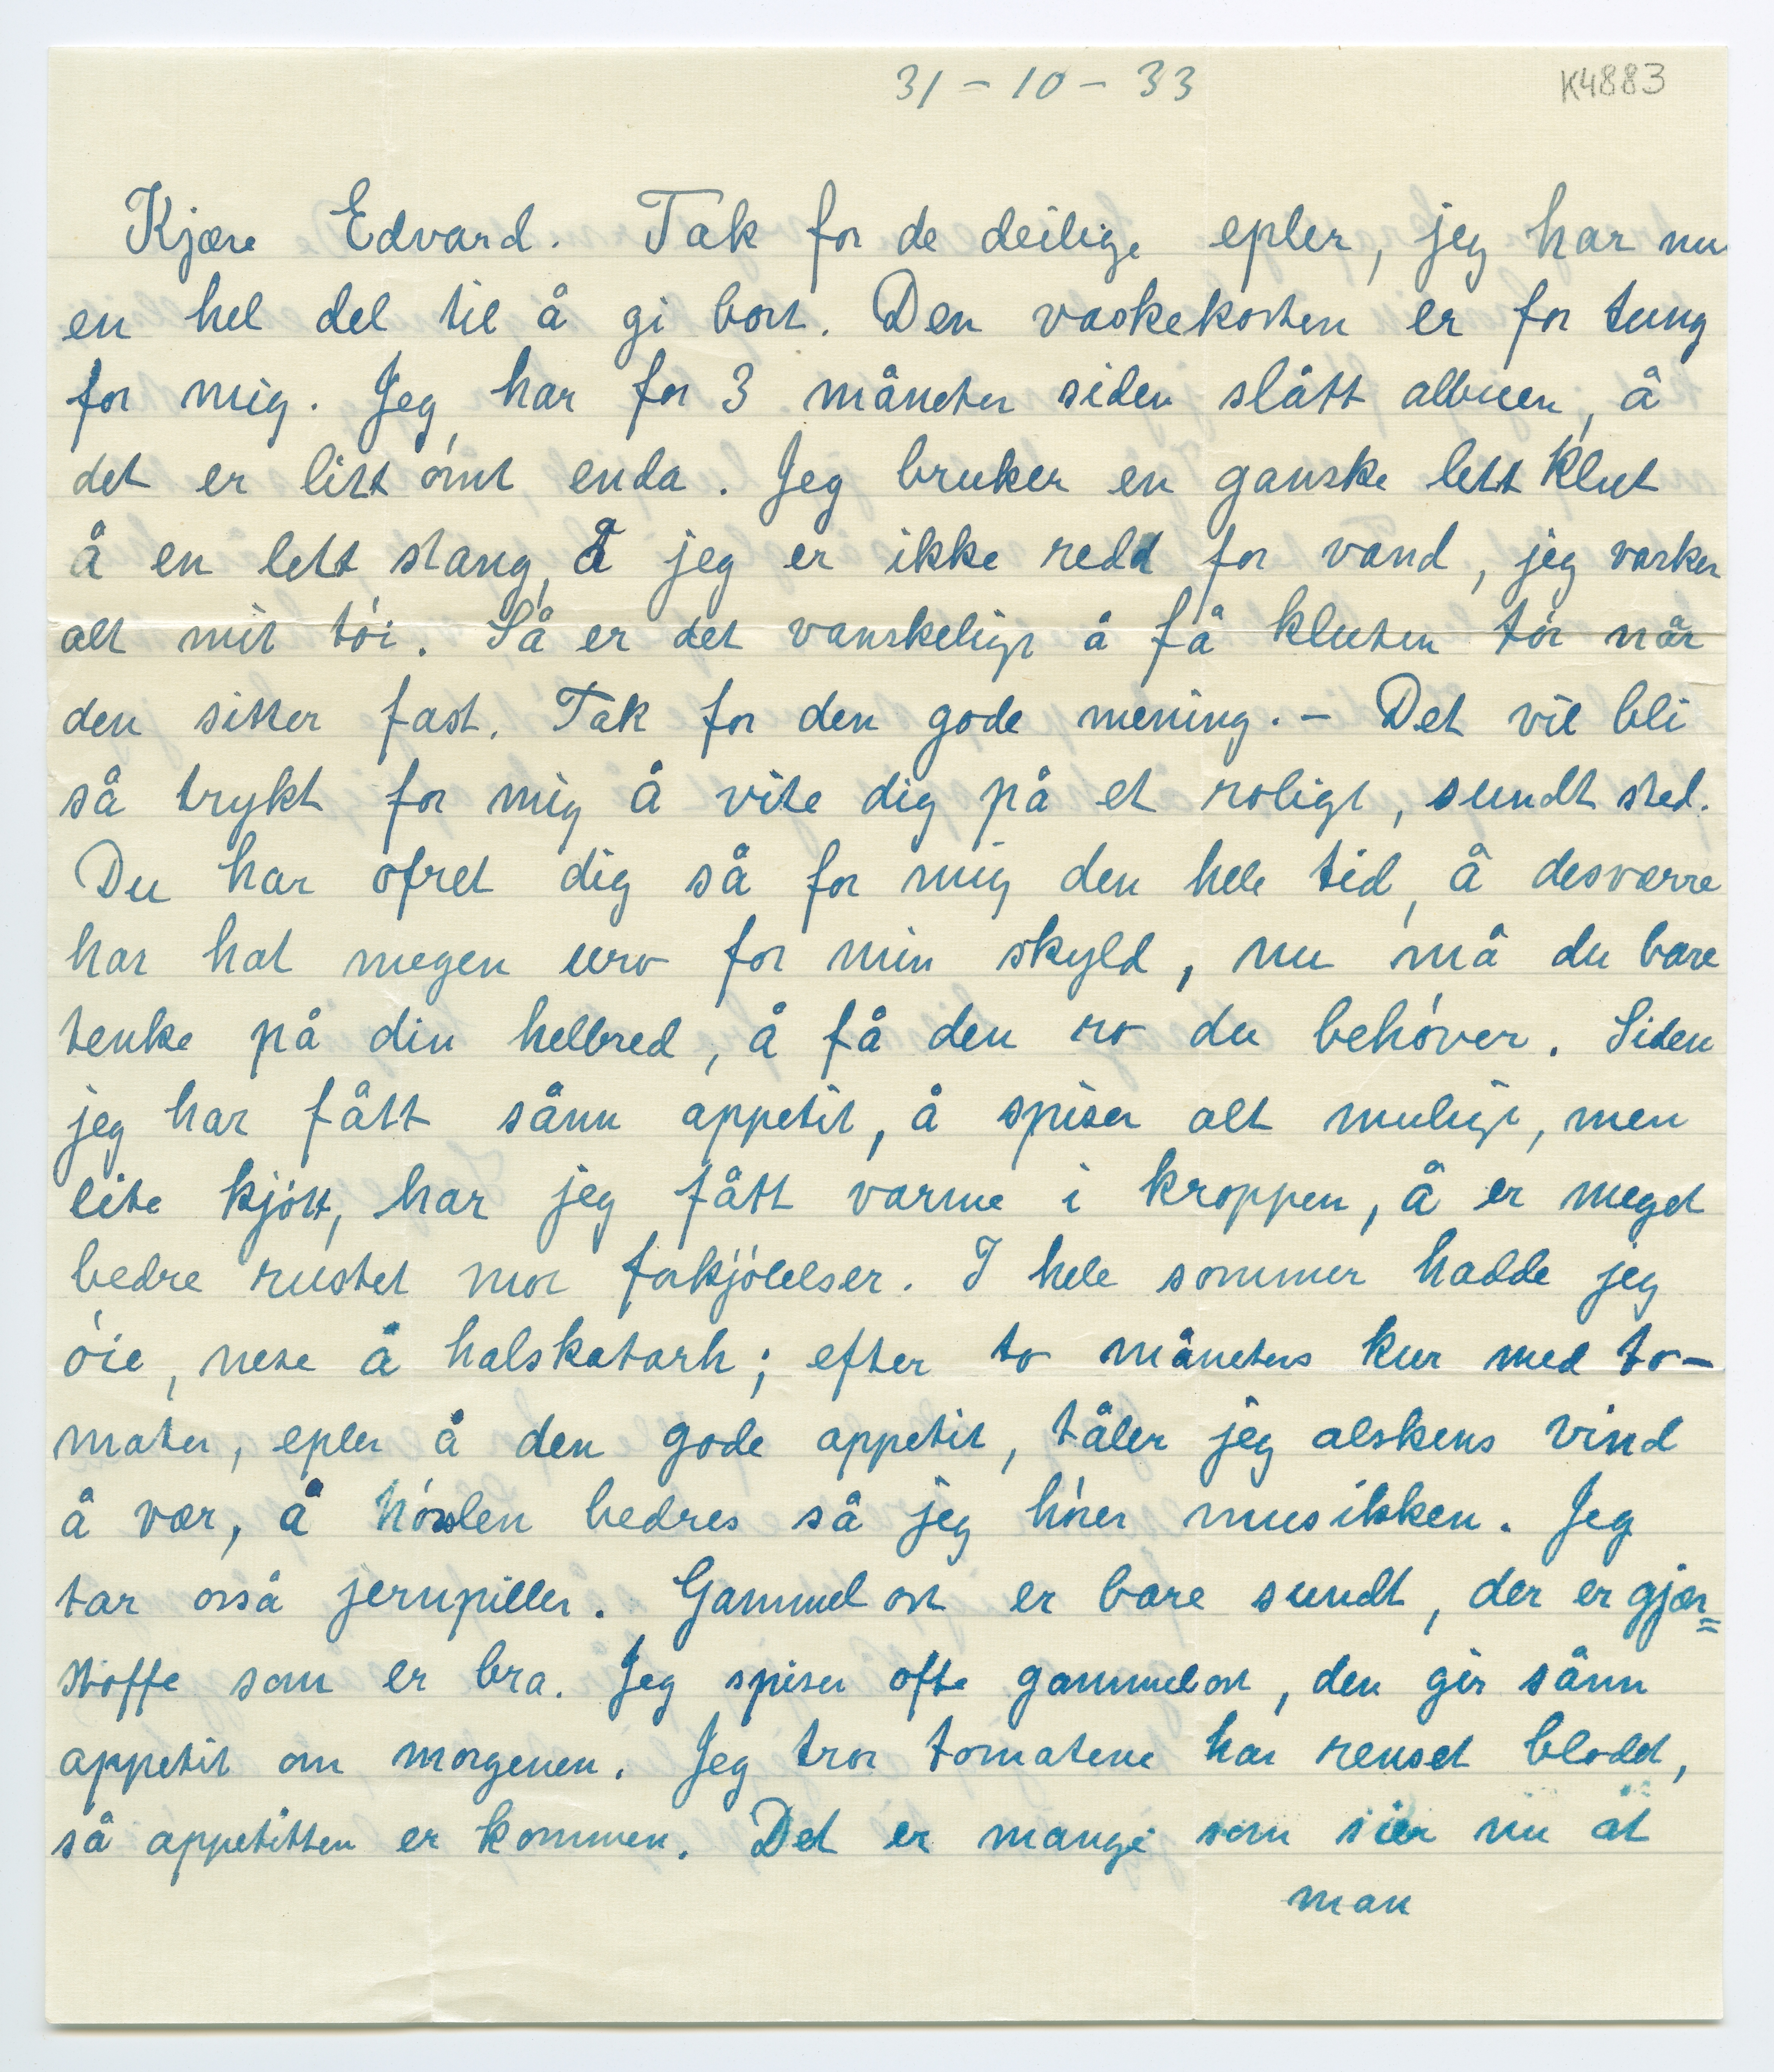 31 - 10 - 33
K4883
Kjære Edvard. Tak for de deilige epler, jeg har nu
en hel del til å gi bort. Den vaskekosten er for tung
for mig. Jeg har for 3 måneter siden slått albuen, å
det er litt ómt enda. Jeg bruker en ganske lett klut
å en lett stang, å jeg er ikke redd for vand, jeg vasker
alt mit tói. Så er det vanskeligt å få kluten tór når
den sitter fast. Tak for den gode mening. – Det vil bli
så trykt for mig å vite dig på et roligt, sundt sted.
Du har ofret dig så for mig den hele tid, å desværre
har hat megen uro for min skyld, nu må du bare
tenke på din helbred, å få den ro du behóver. Siden
jeg har fått sånn appetit, å spiser alt muligt, men
lite kjótt, har jeg fått varme i kroppen, å er meget
bedre rustet mot forkjólelser. I hele sommer hadde jeg
óie, nese å halskatarh; efter to måneters kur med to-
mater, epler å den gode appetit, tåler jeg alskens vind
å vær, å hórslen bedres så jeg hórer musikken. Jeg
tar osså jernpiller. Gammelost er bare sundt, der er gjær=
stoffe som er bra. Jeg spiser ofte gammelost, den gir sånn
appetit om morgenen. Jeg tror tomatene har renset blodet,
så appetitten er kommen. Det er mange som sier nu åt
man